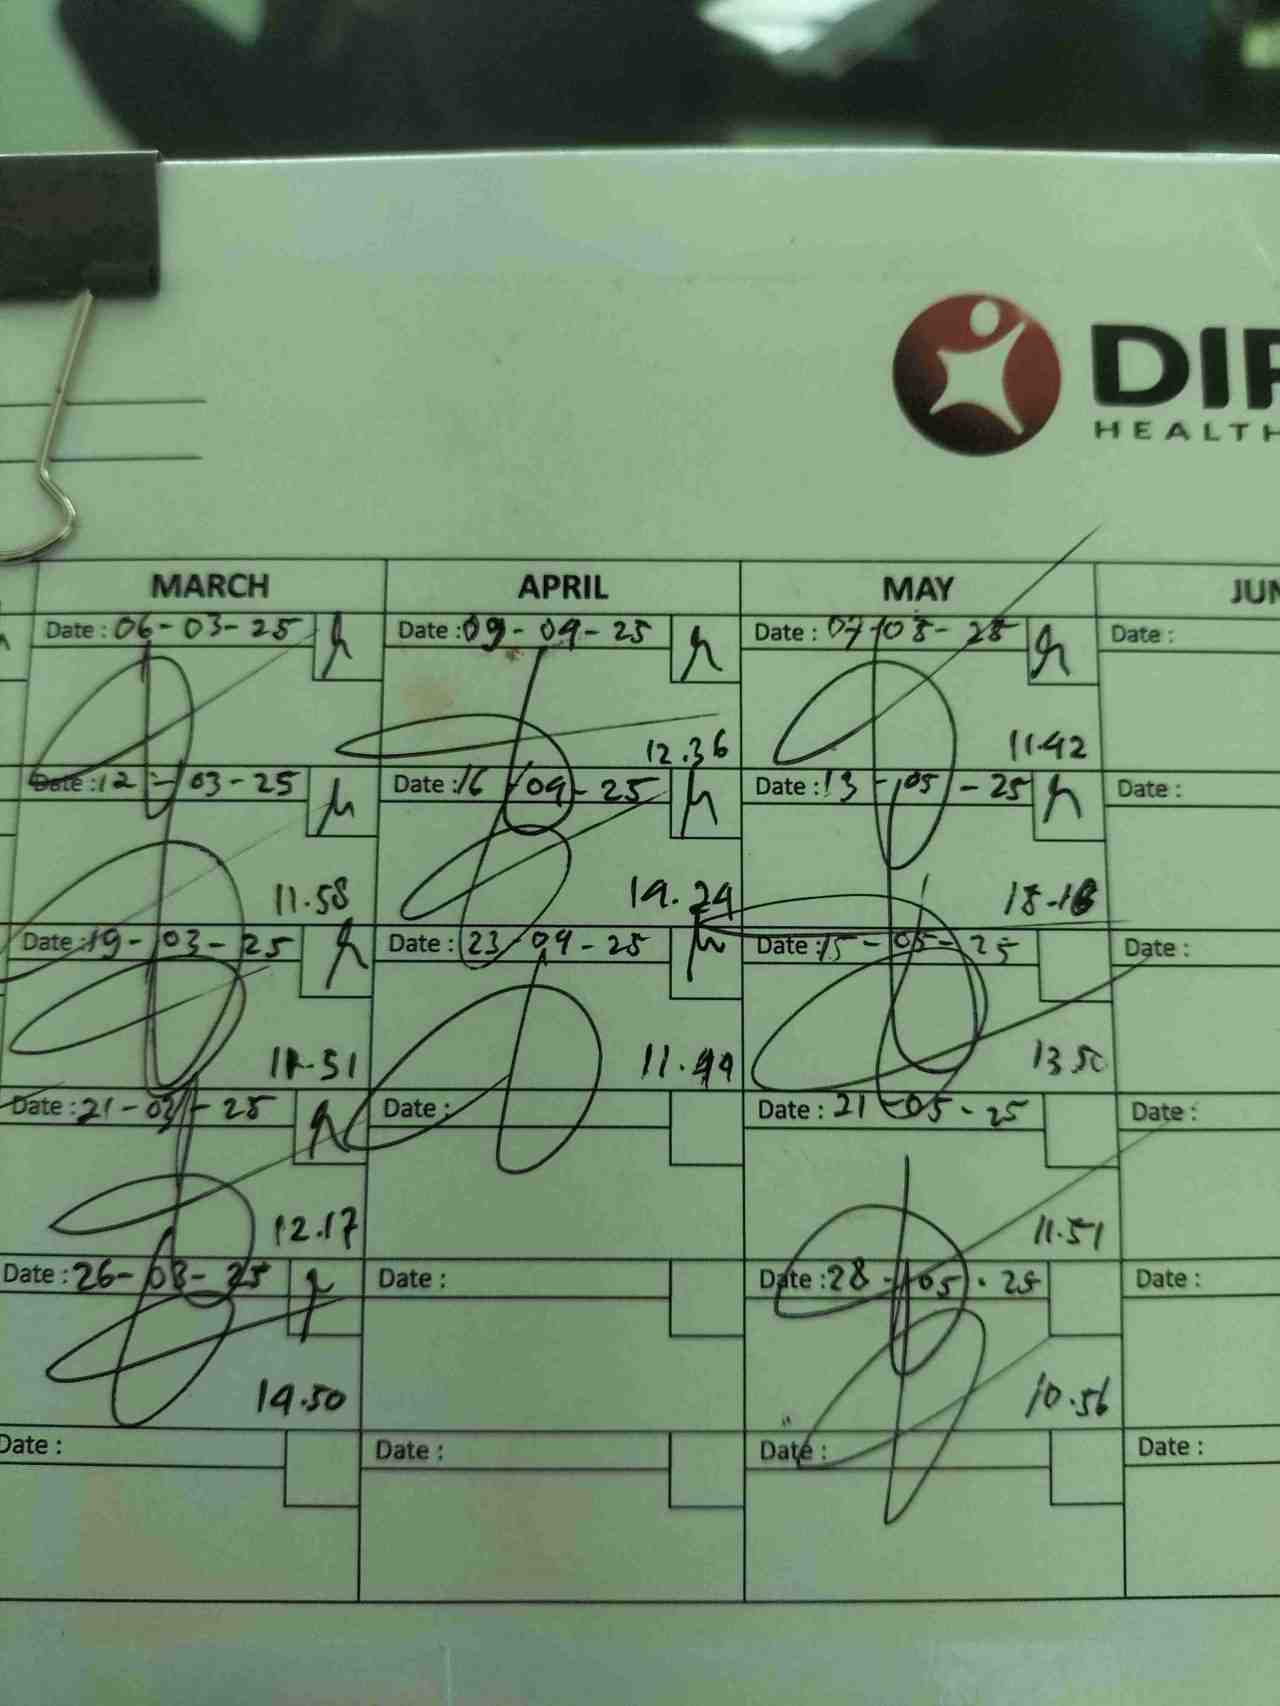 DIP
HEALTH
MARCH APRIL MAY JUN
Date : 06-03-25 Date : 09-04-25 Date : 07-05-25 Date :
12.36 11.42
Date : 12-03-25 Date : 16-04-25 Date : 13-05-25 Date :
11.58 14.24
Date : 19-03-25 Date : 23-04-25 Date : 15-05-25 Date :
11.51 11.44 13.50
Date : 21-03-25 Date : Date : 21-05-25 Date :
12.17 11.51
Date : 26-03-25 Date : Date : 28-05-25 Date :
14.50 10.56
Date : Date : Date : Date :